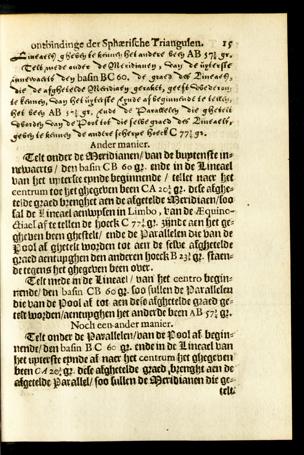 ontbindinge der Sphærische Triangulen. 15
Lineaels / gheven te kennen het andere been AB 57¾ gr.
Telt mede onder de Meridianen, van de uyterste
innewaerts den basin BC 60. de graed des Lineaels,
die de afghetelde Meridiaen geraket, geeft wederom
te kennen, van het uyterste eynde af beginnende te tellen,
het been AB 57¾ gr. ende de Parallelen die ghetelt
worden van de Pool tot die selve graed des Lineaels,
geven te kennen de andere scherpe hoeck C 77¾ gr.
Ander manier.
Telt onder de Meridianen / van de buytenste in-
newaerts / den basin CB 60 gr. ende in de Lineael
van het uyterste eynde beginnende / tellet naer het
centrum tot het ghegeven been CA 20¾ gr. dese afghe-
telde graed brenghet aen de afgetelde Meridiaen / soo
sal de Lineael aenwysen in Limbo, van de Æquino-
ctiael af te tellen de hoeck C 77¾ gr. zijnde aen het ge-
gheven been ghestelt / ende de Parallelen die van de
Pool af ghetelt worden tot aen de selve afghetelde
graed aentuyghen den anderen hoeck B 23¾ gr. staen-
de tegens het ghegeven been over.
Telt mede in de Lineael / van het centro begin-
nende / den basin CB 60 gr. soo sullen de Parallelen
die van de Pool af tot aen dese afghetelde graed ge-
telt worden / aentuyghen het ander de been AB 57¾ gr.
Noch een ander manier.
Telt onder de Parallelen / van de Pool af begin-
nende / den basin BC 60 gr. ende in de Lineael van
het uyterste eynde af naer het centrum het ghegeven
been CA 20¾ gr. dese afghetelde graed / brenght aen de
afgetelde Parallel / soo sullen de Meridianen die ge-
telt